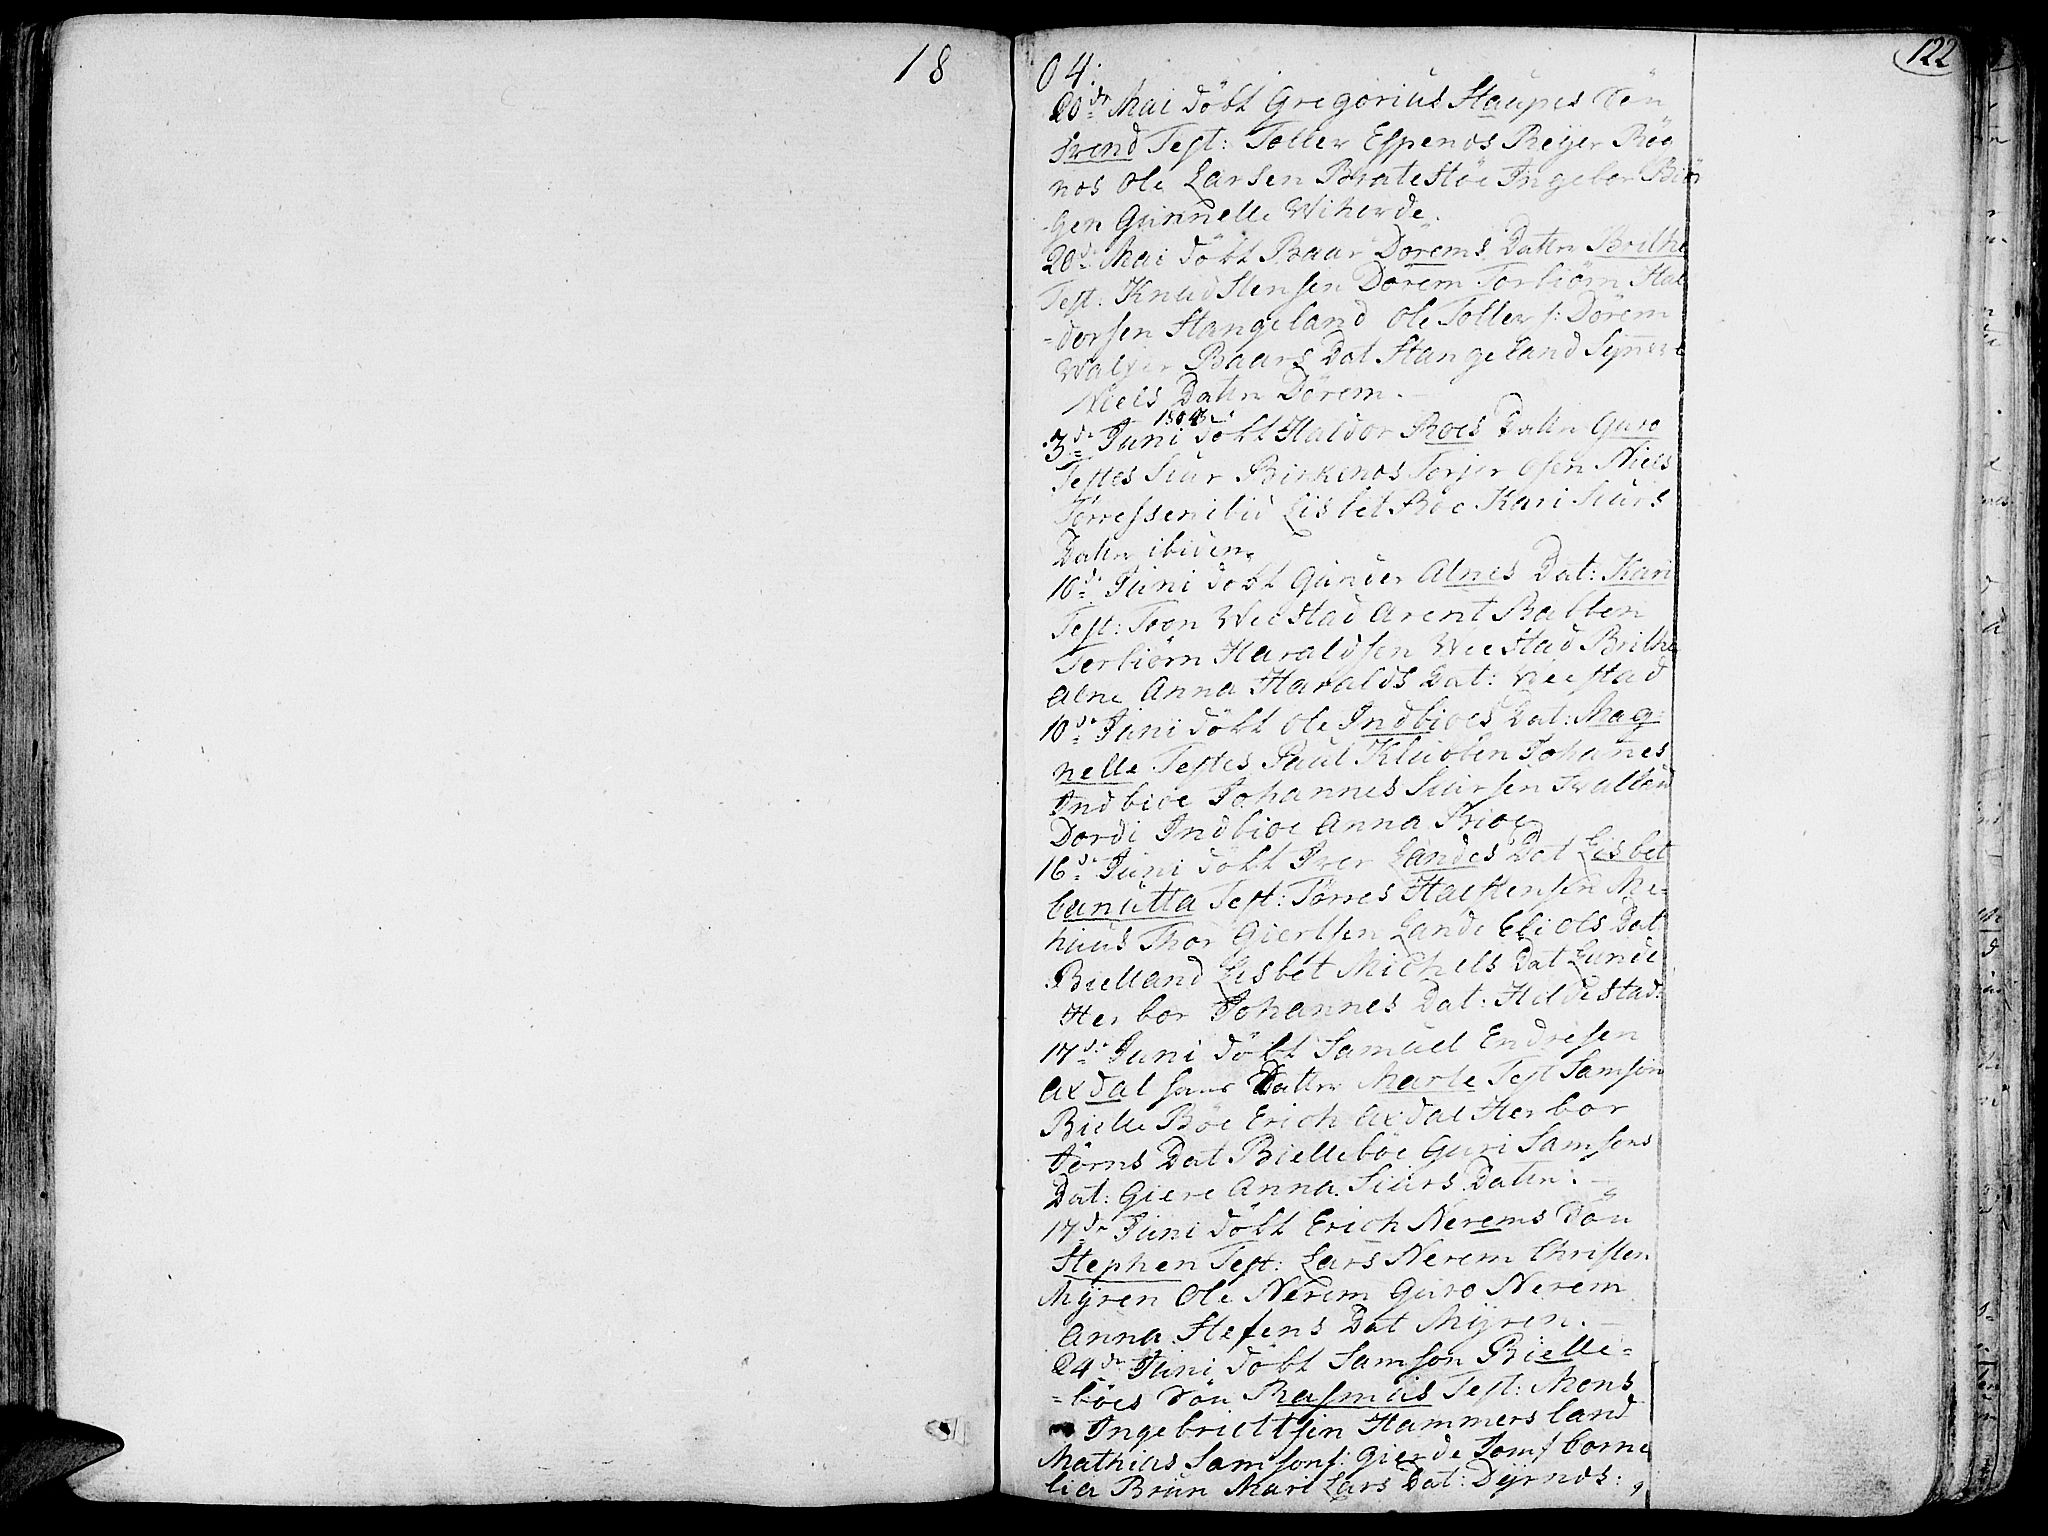 18
04:
122
20de Mai döbt Gregorius Haupes Sön
Svend Test: Toller Espenes Reÿer Röe
nos Ole Larsen Bratestöe Ingebor Biör
gen Gunnelle Wiherde.
20de Mai döbt Baar Dörems Datter Brithe
Test. Knud Stensen Dörem Torbiörn Hal
dorsen Stangeland Ole Toller s: Dörem
Baars Dat Stangeland Synneve
Niels Datter Dörem.
3de Juni 1804 döbt Haldor Roes Datter Guro
Testes Siur Birkenes Torjer Osen Niels
Torressen ibid Lisbet Roe Kari Siurs
Datter ibidem
10de Juni döbt Gunder Alnes Dat: Kari
Test: Tron Weestad Arent Balten
Torbiörn Haraldsen Weestad Brithe
Alne Anna Haralds Dat: Weestad
10de Juni döbt Ole Indbioes Dat: Mag:
nelle Testes Paul Johannes
Indbioe Johannes Siursen
Dordi Indbioe Anna
16de Juni döbt Iver Landes Dat Lisbet
Test: Törres Halstensen Me=
huus Thor Giertsen Lande Eli Ols Dat
Bielland Lisbet Michels Dat Lunde
Herbor Johannes Dat: Hildestad:
17de Juni döbt Samuel Endresen
Axdal sans Datter Marte Test Samson
Bielle Böe Erich Axdal Herbor
Törns Dat Bielleböe Guri Samsons
Dat: Giere Anna Siurs Datter. —
17de Juni döbt Erich Nerems Sön
Stephen Test: Lars Nerem Christen
Mÿren Ole Nerem Guro Nerem
Anna Stefens Dat Mÿren. —
24de Juni döbt Samson Bielle=
=böes Sön Rasmus Test: Mons
Ingebrictsen Hammersland
Mathias Samsons: Gierde Jomf Corne
lia Brun Mari Lars Dat: Dÿrnes: